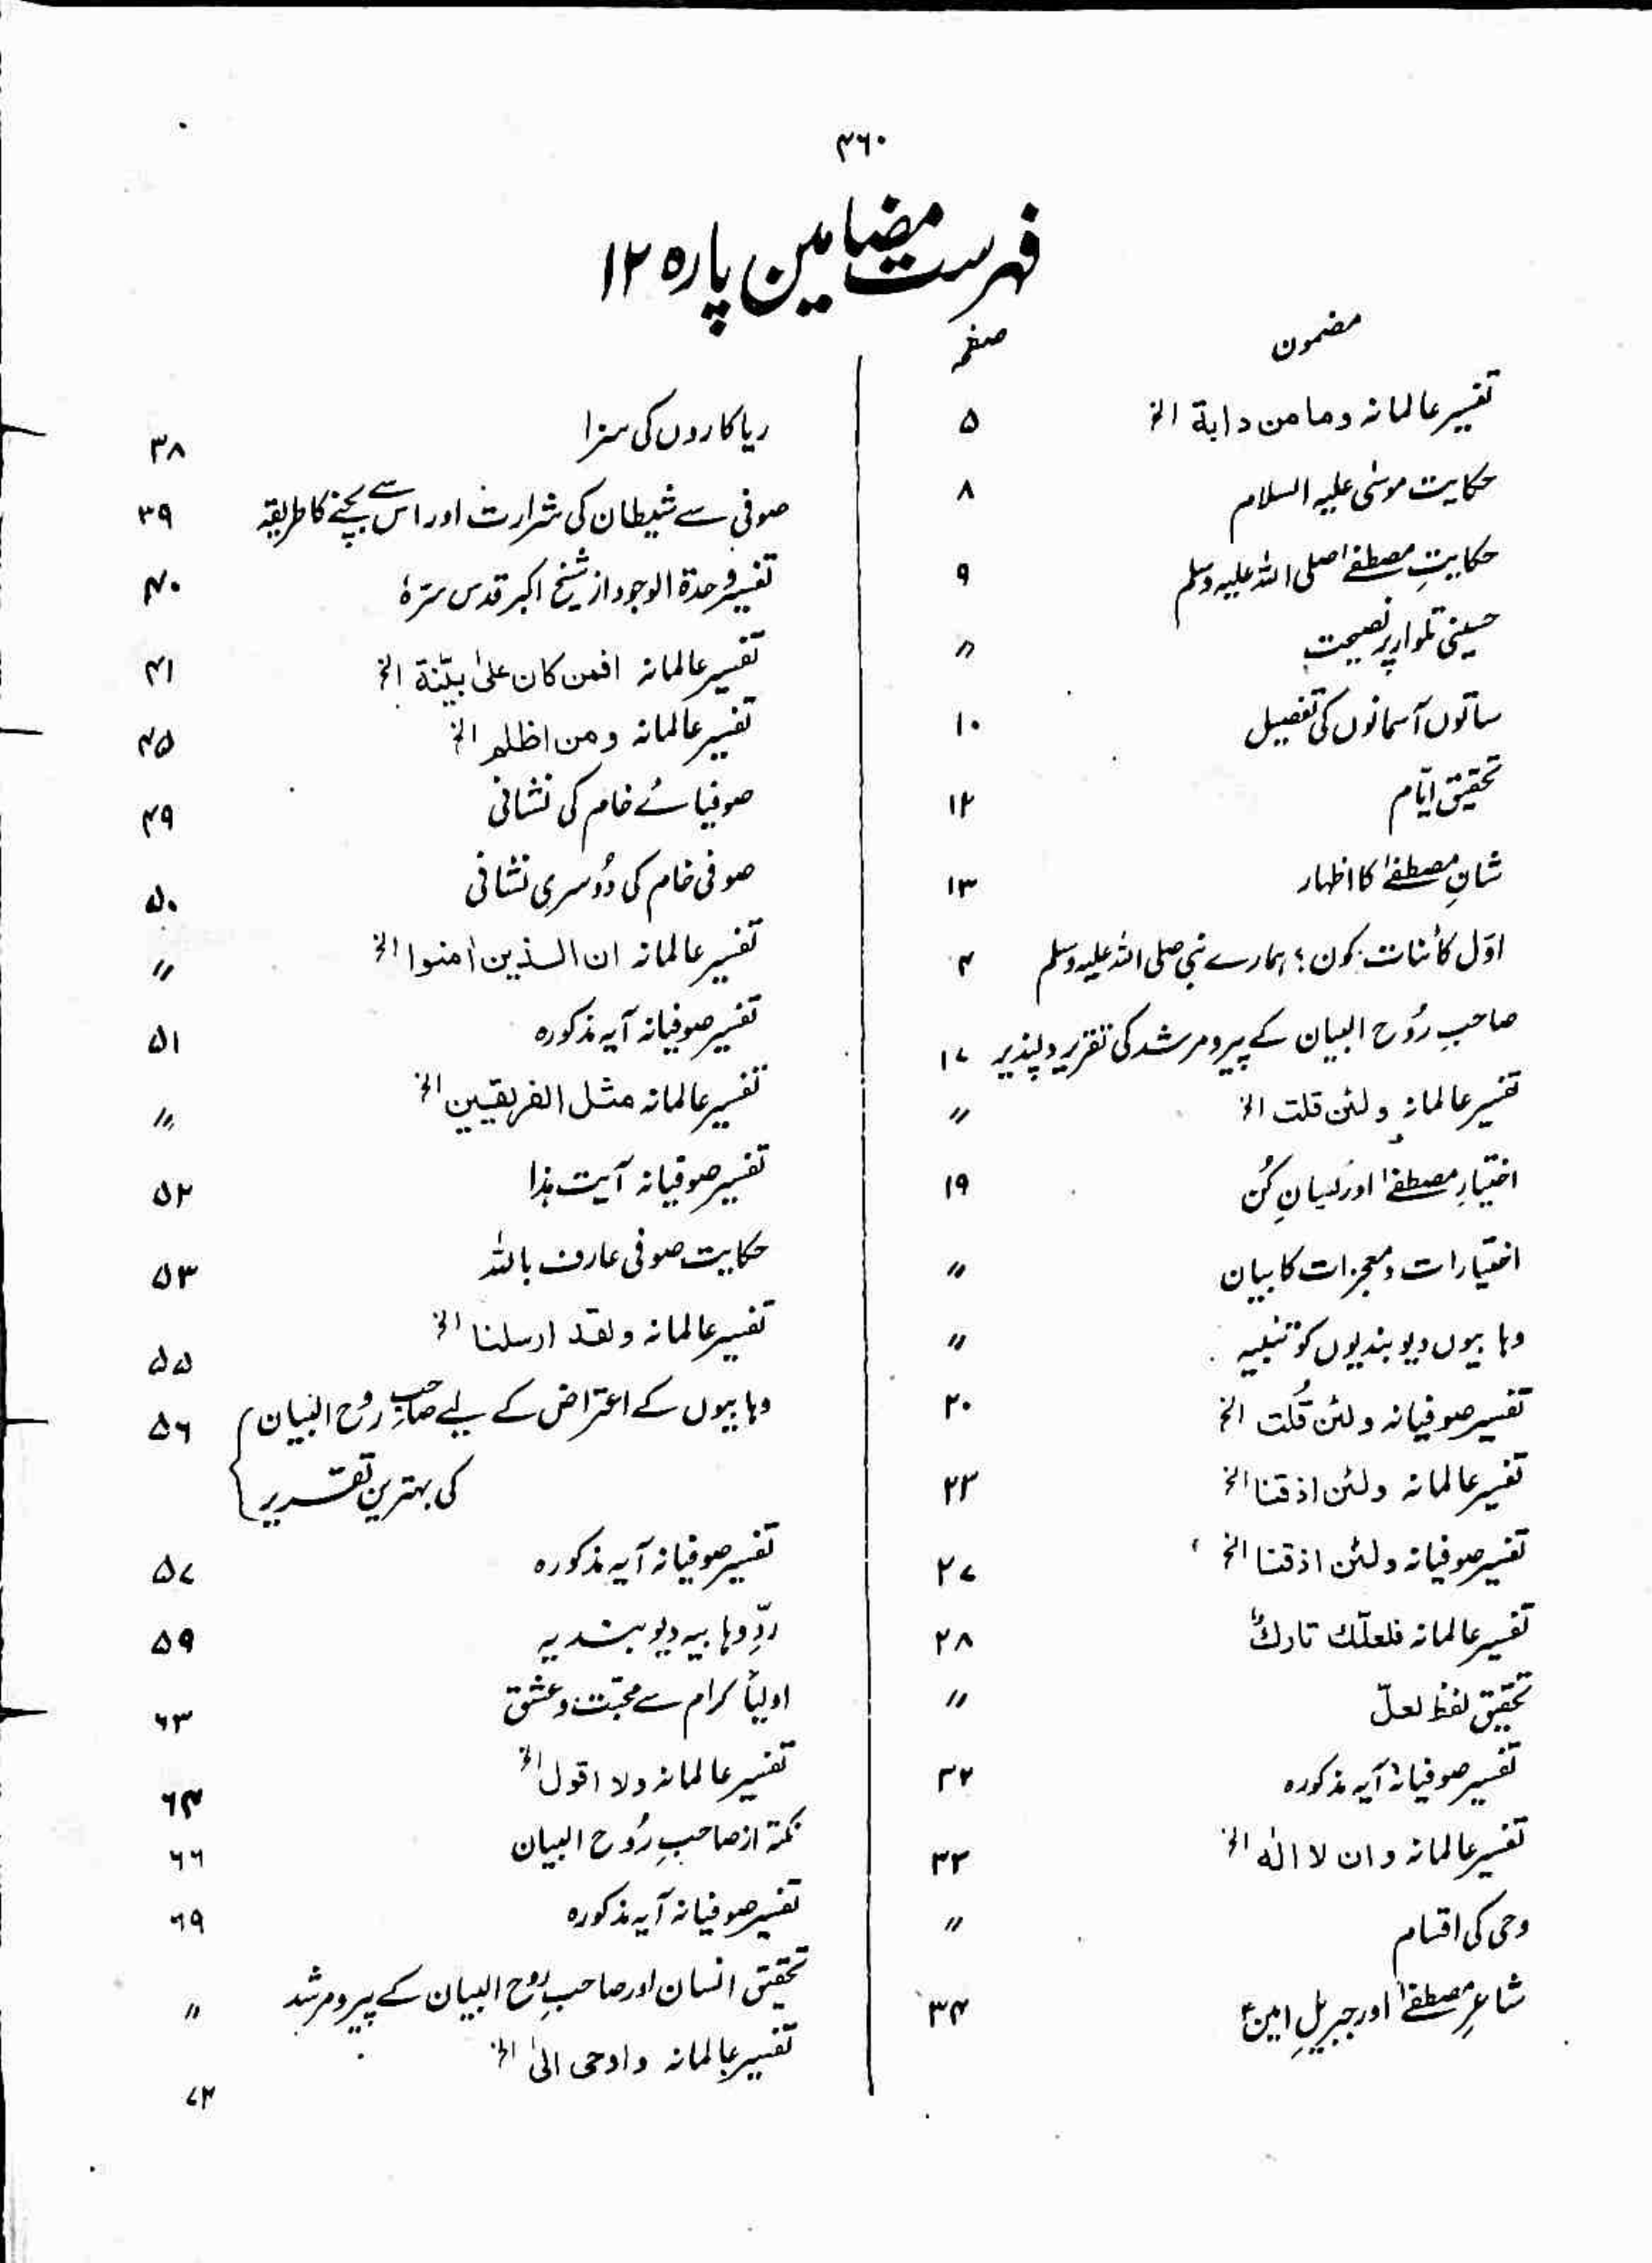 ۳۶۰
فہرست مضامین پارہ ۱۲
مضمون صفحہ
تفسیر عالمانہ وما من دابة الخ ۵
حکایت موسٰی علیہ السلام ۸
حکایتِ مصطفےٰ صلی اللہ علیہ وسلم ۹
حسینی تلوار پر نصیحت 〃
ساتوں آسمانوں کی تفصیل ۱۰
تحقیق ایّام ۱۲
شانِ مصطفےٰ کا اظہار ۱۳
اوّل کائنات کون؛ ہمارے نبی صلی اللہ علیہ وسلم ۴
صاحبِ رُوح البیان کے پیر و مرشد کی تقریر دلپذیر ۱۷
تفسیر عالمانہ ولئن قلت الخ 〃
اختیارِ مصطفےٰ اور لسانِ کُن ۱۹
اختیارات و معجزات کا بیان 〃
وہابیوں دیوبندیوں کو تنبیہ 〃
تفسیر صوفیانہ ولئن قُلت الخ ۲۰
تفسیر عالمانہ ولئن اذقنا الخ ۲۳
تفسیر صوفیانہ ولئن اذقنا الخ ۲۷
تفسیر عالمانہ فلعلّك تارك ۲۸
تحقیق لفظ لعلّ 〃
تفسیر صوفیانہ آیہ مذکورہ ۳۲
تفسیر عالمانہ وان لا الٰه الخ ۳۳
وحی کی اقسام 〃
شاعرِ مصطفےٰ اور جبریلِ امین ۳۴
ریاکاروں کی سزا ۳۸
صوفی سے شیطان کی شرارت اور اس سے بچنے کا طریقہ ۳۹
تفسیر وحدۃ الوجود از شیخ اکبر قدس سرّہٗ ۴۰
تفسیر عالمانہ افمن کان علیٰ بیّنة الخ ۴۱
تفسیر عالمانہ ومن اظلم الخ ۴۵
صوفیائے خام کی نشانی ۴۹
صوفی خام کی دُوسری نشانی ۵۰
تفسیر عالمانہ ان الـذین اٰمنوا الخ 〃
تفسیر صوفیانہ آیہ مذکورہ ۵۱
تفسیر عالمانہ مثل الفریقین الخ 〃
تفسیر صوفیانہ آیت ہٰذا ۵۲
حکایت صوفی عارف باللہ ۵۳
تفسیر عالمانہ ولقد ارسلنا الخ ۵۵
وہابیوں کے اعتراض کے لیے صاحبِ روح البیان ۵۶
کی بہترین تقـریر
تفسیر صوفیانہ آیہ مذکورہ ۵۷
ردِّ وہابیہ دیوبندیہ ۵۹
اولیأ کرام سے محبّت و عشق ۶۳
تفسیر عالمانہ ولا اقول الخ ۶۴
نکتہ از صاحبِ رُوح البیان ۶۶
تفسیر صوفیانہ آیہ مذکورہ ۶۹
تحقیق انسان اور صاحبِ روح البیان کے پیر و مرشد 〃
تفسیر عالمانہ واوحی الیٰ الخ ۷۲